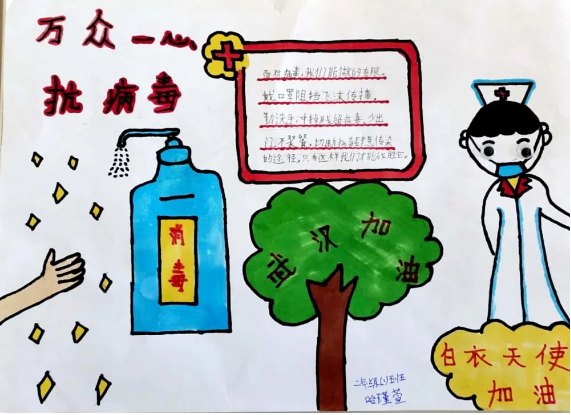 万众一心
抗病毒
面对病毒,我们能做的有限,
戴口罩阻挡飞沫传播,
勤洗手,冲掉残留病毒,少出
门,不聚餐,切断病毒传染
的途径,只有这样我们才能战胜它.
消毒
武汉加油
白衣天使
加油
二年级
哈瑾萱